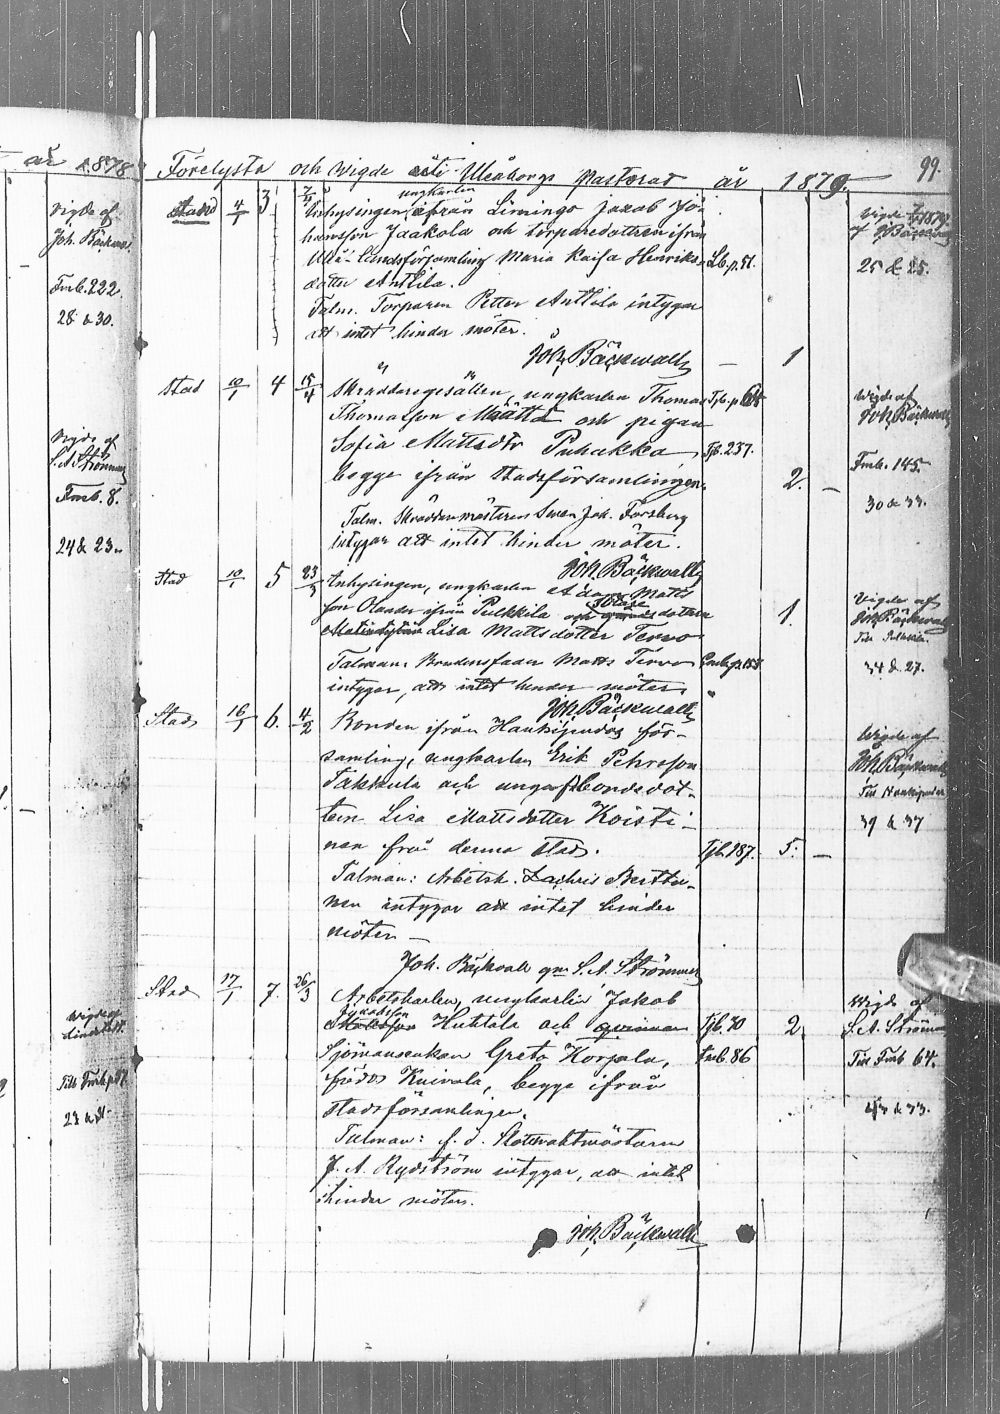 år 1878
Vigde af
Joh. Bäckwall
Fmb. 222.
28 & 30.
Vigde af
S. A. Strömmer
Fmb. 8.
24 & 23.
Vigde af
23 & 21.
Förelysta och Wigde uti Uleåborgs Pastorat år 1879. 99.
Stad 4/1 3 ungkarlen
Inhysingen ifrån Limingo Jakob Jo-
hansson Jaakola och torparedottren ifrån
Uleå Landsförsamling Maria Kaisa Henriks- Lb. p. 51.
dotter Anttila.
Talm. Torparen Petter Anttila intygar
att intet hinder möter.
Joh. Bäckwall — 1
Vigde 1879
af J Bäckwall
25 & 25.
Stad 10/1 4 15/4 Skräddaregesällen, ungkarlen Thomas Tjb. p. 64
Thomasson Määttä och pigan
Sofia Mattsdtr Puhakka, Tjb. 237.
begge ifrån Stadsförsamlingen. 2. —
Talm. Skräddaremästaren Swen Joh. Forsberg
intygar att intet hinder möter.
Joh. Bäckwall
Wigde af
Joh. Bäckwall
Fmb. 145.
30 & 33.
Stad 10/1 5 23/3 Inhysingen, ungkarlen Adam Matts
son Olander ifrån Pulkkila och dottren
Lisa Mattsdotter Terwo 1.
Talman: Brudens fader Matts Terwo
intygar, att intet hinder möter.
Joh. Bäckwall
Vigde af
Joh. Bäckwall
Till Pulkkila.
34 & 27.
Stad 16/1 6. 4/2 Bonden ifrån Haukipudas för-
samling, ungkarlen Erik Pehrsson
Takkula och unga bondedot-
tern Lisa Mattsdotter Koisti-
nen från denna stad. Tjb. 187. 5. —
Talman: Arbetsk. Zachris Berttu-
nen intygar att intet hinder
möter —
Joh. Bäckvall gm S. A. Strömmer
Wigde af
Joh. Bäckwall
Till Haukipudas
39 & 37
Stad 17/1 7. 26/3 Arbetskarlen, ungkarlen Jakob
Huhtala och qvinnan Tjb. 70 2.
Sjömansenkan Greta Korpela, Fmb. 86
född Kuivala, begge ifrån
stadsförsamlingen.
Talman: f. d. Slottsvaktmästaren
J. A. Rydström intygar, att intet
hinder möter.
Joh. Bäckwall
Wigde af
S. A. Strömmer
Till Fmb 64.
43 & 33.